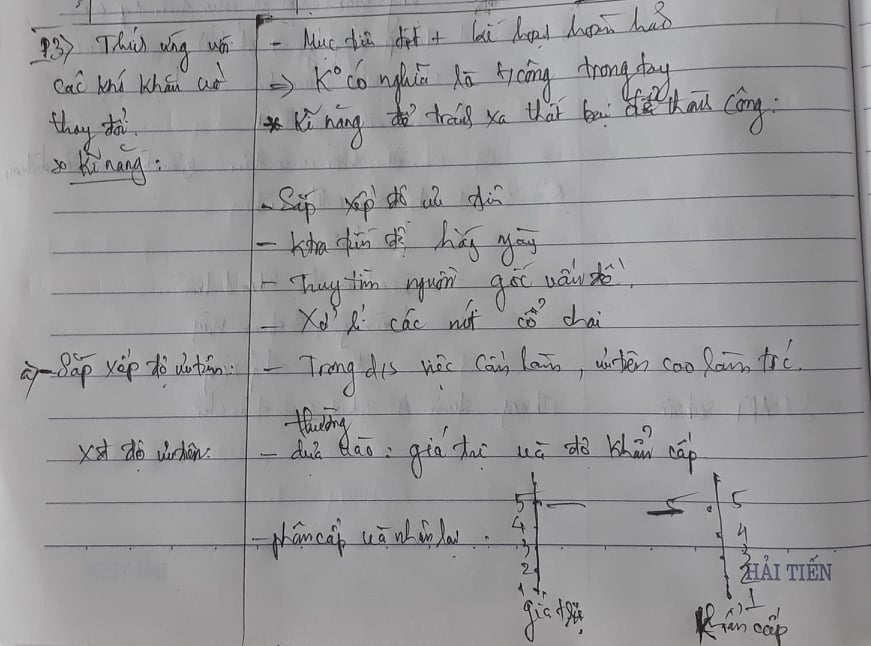 P3) Thích ứng với
các khó khăn và
thay đổi.
* Kĩ năng:
- Mục tiêu đẹp + kế hoạch hoàn hảo
=> K° có nghĩa là t/công trong tay
* Kĩ năng để tránh xa thất bại để thành công:
- Sắp xếp độ ưu tiên
- Khả thi
- Truy tìm nguồn gốc vấn đề.
- Xử lí các nút cổ chai
a) - Sắp xếp độ ưu tiên:
- Trong d/s việc cần làm, ưu tiên cao làm trc.
Xđ độ ưu tiên:
thường
- dựa vào: giá trị và độ khẩn cấp
- phân cấp và nhân lại.
5
4
3
2
1
giá trị
5
5
4
3
2
1
Khẩn cấp
HẢI TIẾN